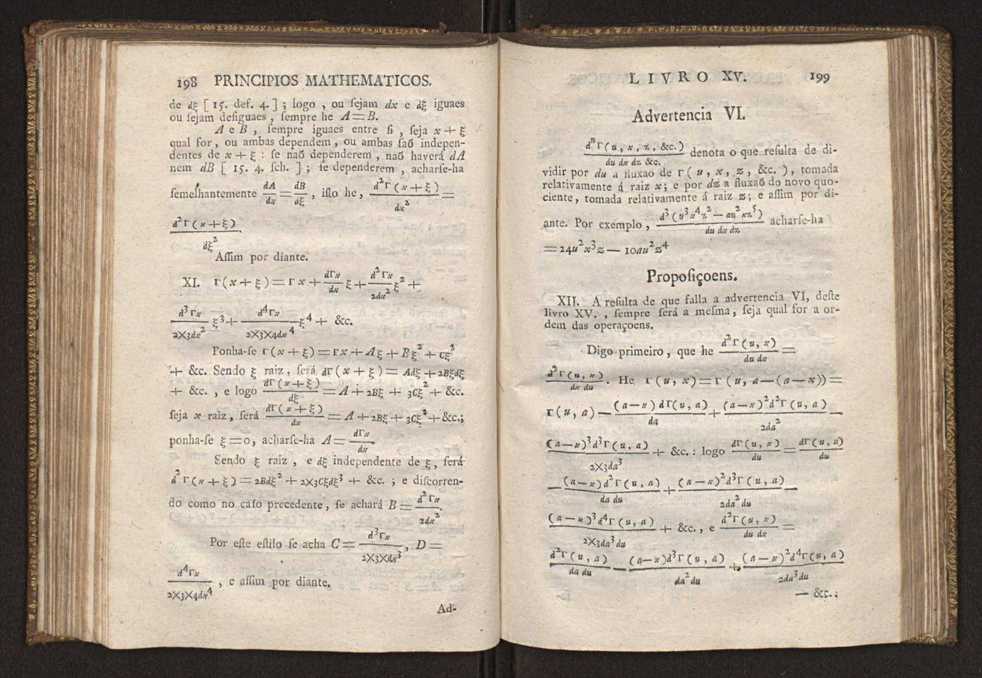 198 PRINCIPIOS MATHEMATICOS.
de dξ [ 15. def. 4. ] ; logo , ou ſejam dx e dξ iguaes
ou ſejam deſiguaes , ſempre he A = B.
A e B , ſempre iguaes entre ſi , ſeja x + ξ
qual for , ou ambas dependem , ou ambas ſaõ indepen-
dentes de x + ξ : ſe naõ dependerem , naõ haverá dA
nem dB [ 15. 4. ſch. ] ; ſe dependerem , acharſe-ha
ſemelhantemente dA/dx = dB/dξ , iſto he, d²Γ(x+ξ)/dx² =
d²Γ(x+ξ)/dξ²
Aſſim por diante.
XI. Γ(x+ξ) = Γx + dΓx/dx ξ + d²Γx/2dx² ξ² +
d³Γx/2X3dx² ξ³ + d⁴Γx/2X3X4dx⁴ ξ⁴ + &c.
Ponha-ſe Γ(x+ξ) = Γx + Aξ + Bξ² + Cξ³
+ &c. Sendo ξ raiz , ſerá dΓ(x+ξ) = Adξ + 2Bξdξ
+ &c. , e logo dΓ(x+ξ)/dξ = A + 2Bξ + 3Cξ² + &c.
ſeja x raiz, ſerá dΓ(x+ξ)/dx = A + 2Bξ + 3Cξ² + &c.;
ponha-ſe ξ = 0, acharſe-ha A = dΓx/dx.
Sendo ξ raiz , e dξ independente de ξ, ſerá
d²Γ(x+ξ) = 2Bdξ² + 2X3Cξdξ³ + &c. ; e diſcorren-
do como no caſo precedente, ſe achará B = d²Γx/2dx².
Por eſte eſtilo ſe acha C = d³Γx/2X3Xdx³, D =
d⁴Γx/2X3X4dx⁴ , e aſſim por diante.
Ad-
LIVRO XV. 199
Advertencia VI.
dⁿΓ(u, x, z, &c.)/du dx dz &c. denota o que reſulta de di-
vidir por du a fluxao de Γ( u, x, z, &c. ), tomada
relativamente á raiz x; e por dz a fluxaõ do novo quo-
ciente, tomada relativamente á raiz z; e aſſim por di-
ante. Por exemplo , d³(u³x⁴z² — au²xz⁵)/du dx dz acharſe-ha
= 24u²x³z — 10au²z⁴
Propoſiçoens.
XII. A reſulta de que falla a advertencia VI, deſte
livro XV. , ſempre ſerá a meſma, ſeja qual for a or-
dem das operaçoens.
Digo primeiro, que he d²Γ(u, x)/du dx =
d²Γ(u, x)/dx du. He Γ(u, x) = Γ(u, a—(a—x)) =
Γ(u, a) — (a—x) dΓ(u, a)/da + (a—x)²d²Γ(u, a)/2da² —
(a—x)³d³Γ(u, a)/2X3da³ + &c. : logo dΓ(u, x)/du = dΓ(u, a)/du
— (a—x) d²Γ(u, a)/da du + (a—x)²d³Γ(u, a)/2da²du —
(a—x)³d⁴Γ(u, a)/2X3da³du + &c., e d²Γ(u, x)/du dx =
d²Γ(u, a)/da du — (a—x)d³Γ(u, a)/da²du + (a—x)²d⁴Γ(u, a)/2da³du
— &c. ;